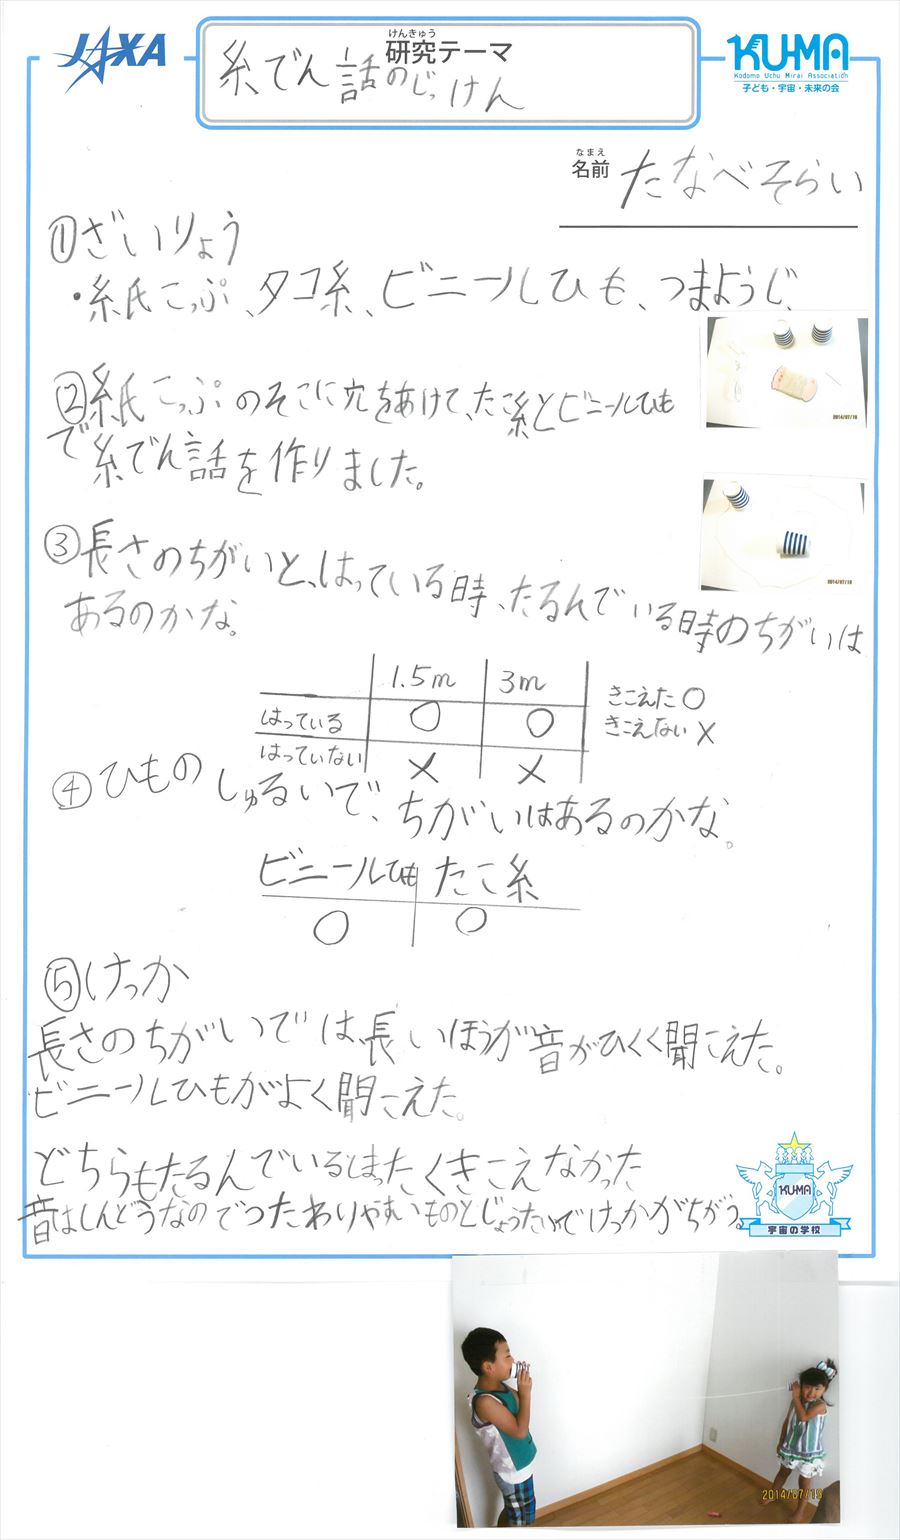 JAXA
けんきゅう
研究テーマ
糸でん話のじっけん
KU-MA
Kodomo Uchu Mirai Association
子ども・宇宙・未来の会
なまえ
名前 たなべそらい
①ざいりょう
・紙こっぷ、タコ糸、ビニールひも、つまようじ、
2014/07/19
②紙こっぷのそこに穴をあけて、たこ糸とビニールひも
で糸でん話を作りました。
2014/07/19
③長さのちがいと、はっている時、たるんでいる時のちがいは
あるのかな。
1.5m 3m
はっている ○ ○
はっていない × ×
きこえた○
きこえない×
④ひものしゅるいで、ちがいはあるのかな。
ビニールひも たこ糸
○ ○
⑤けっか
長さのちがいでは、長いほうが音がひくく聞こえた。
ビニールひもがよく聞こえた。
どちらもたるんでいるとまったくきこえなかった
音はしんどうなのでつたわりやすいものとじょうたいでけっかがちがう。
KU-MA
宇宙の学校
2014/07/19